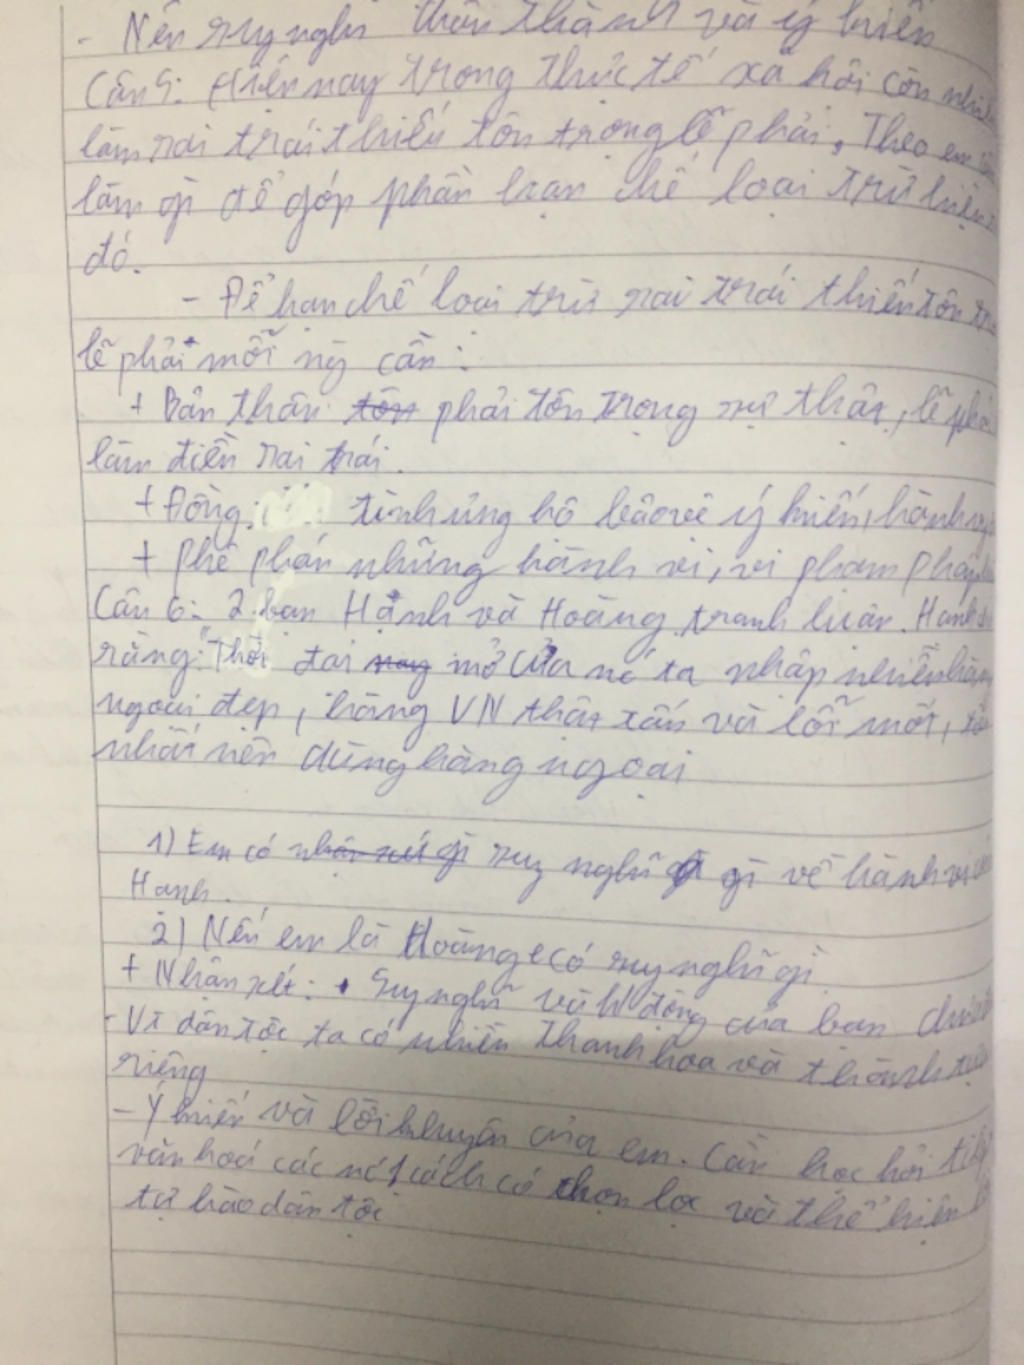 - Nên suy nghĩ thôn thành và ý kiến
Câu 5: Hiện nay trong thức tế xã hội còn
làm sai trái thiếu tôn trọng lẽ phải, Theo em
làm gì để góp phần hạn chế loại trừ hiện
đó.
- Để hạn chế loại trừ sai trái thiếu tôn
lẽ phải mỗi ng cần:
+ Bản thân phải tôn trọng sự thật, lẽ
làm điều sai trái.
+ Đồng tình ủng hộ bảo vệ ý kiến, hành
+ phê phán những hành vi, vi phạm
Câu 6: 2 bạn Hạnh và Hoàng tranh luận. Hạnh
rằng: "Thời đại mở cửa nc ta nhập nhiều hàng
ngoại đẹp, hàng VN thật xấu và lỗi mốt,
nhất nên dùng hàng ngoại
1) Em có suy nghĩ gì về hành vi
Hạnh.
2) Nếu em là Hoàng e có suy nghĩ gì
+ Nhận xét: • Suy nghĩ và động của bạn
- Vì dân tộc ta có nhiều thanh hoa và thành
riêng
- Ý kiến và lời khuyên của em. Cần học hỏi
văn hoá các nc 1 cách có chọn lọc và thể hiện
tự hào dân tộc